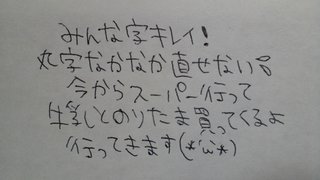 みんな字キレイ!
丸字なかなか直せない。
今からスーパー行って
牛乳とのりたま買ってくるよ
行ってきます(*'ω'*)